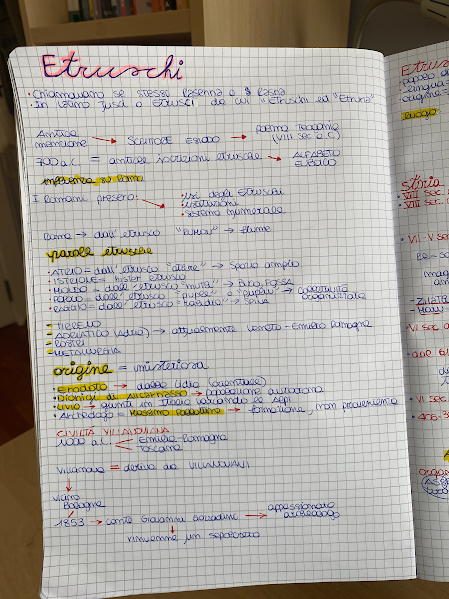 Etruschi
• Chiamavano se stessi Rasenna o Rasna
• In latino Tusci o Etrusci da cui "Etruschi ed "Etruria"
Antica menzione → SCRITTORE ESIODO → POEMA TEOGONIA (VIII sec a.C)
700 a.C. = antiche iscrizioni etrusche → ALFABETO EUBOICO
influenza su Roma
I Romani presero: → • usi degli Etruschi
• istituzioni
• sistema numerale
Roma → dall'etrusco "RUMON" → fiume
parole etrusche
• ATRIO = dall'etrusco → spazio ampio
• ISTRIONE = hister etrusco
• MONDO = dall'etrusco → buco, FOSSA
• POPOLO = dall'etrusco "puple" → comunità organizzata
= dall'etrusco → SPINA
- TIRRENO
- ADRIATICO (Adria) → attualmente Veneto - Emilia Romagna
- ROSTRI
- METALLURGIA
origine = misteriosa
• Erodoto → dalla Lidia (orientale)
• Dionigi di Alicarnasso → popolazione autoctona
• Livio → giunti in Italia valicando le Alpi
• Archeologo = Massimo Pallottino → formazione, non provenienza
CIVILTÀ VILLANOVIANA
1000 a.C. Emilia Romagna
Toscana
Villanova = deriva da VILLANOVIANI
↓
vicino Bologna
1853 → conte Giovanni Gozzadini → appassionato archeologo
↓
rinvenne un sepolcreto
Etrusc
• popolo d
• lingua
• origine =
luogo
storia
• VIII sec.
• VIII sec.
• VII-V se
• VI sec a
• VI sec